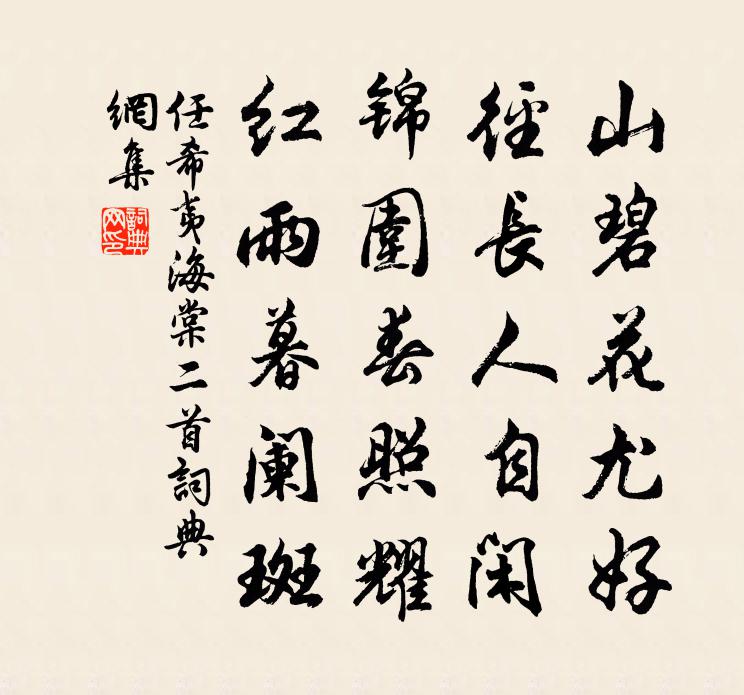 山碧花尤好
徑長人自閑
锦圍春照耀
红雨暮阑斑
任希夷海棠二首詞典
網集
詞典网印